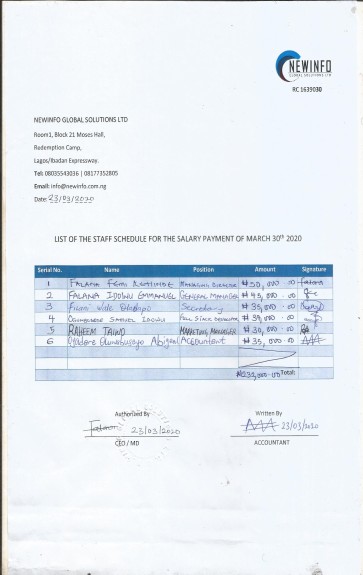 NEWINFO
GLOBAL SOLUTIONS LTD
RC 1639030
NEWINFO GLOBAL SOLUTIONS LTD
Room1, Block 21 Moses Hall,
Redemption Camp,
Lagos/Ibadan Expressway.
Tel: 08035543036 | 08177352805
Email: info@newinfo.com.ng
Date: 23/03/2020
LIST OF THE STAFF SCHEDULE FOR THE SALARY PAYMENT OF MARCH 30th 2020
Serial No. Name Position Amount Signature
1 FALANA FEMI MANAGING DIRECTOR ₦50,000.00
2 FALANA IDOWU EMMANUEL GENERAL MANAGER ₦45,000.00
3 Secretary ₦35,000.00
4 SAMUEL IDOWU FULL STACK DEVELOPER 000.00
5 RAHEEM TAIWO MARKETING MANAGER ₦30,000.00
6 Abigeal Accountant ₦35,000.00
Total:
Authorized By Written By
23/03/2020 23/03/2020
CEO / MD ACCOUNTANT